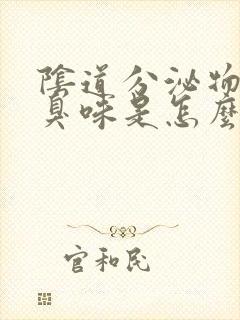 陰道分泌物
臭味是怎麼
官和民